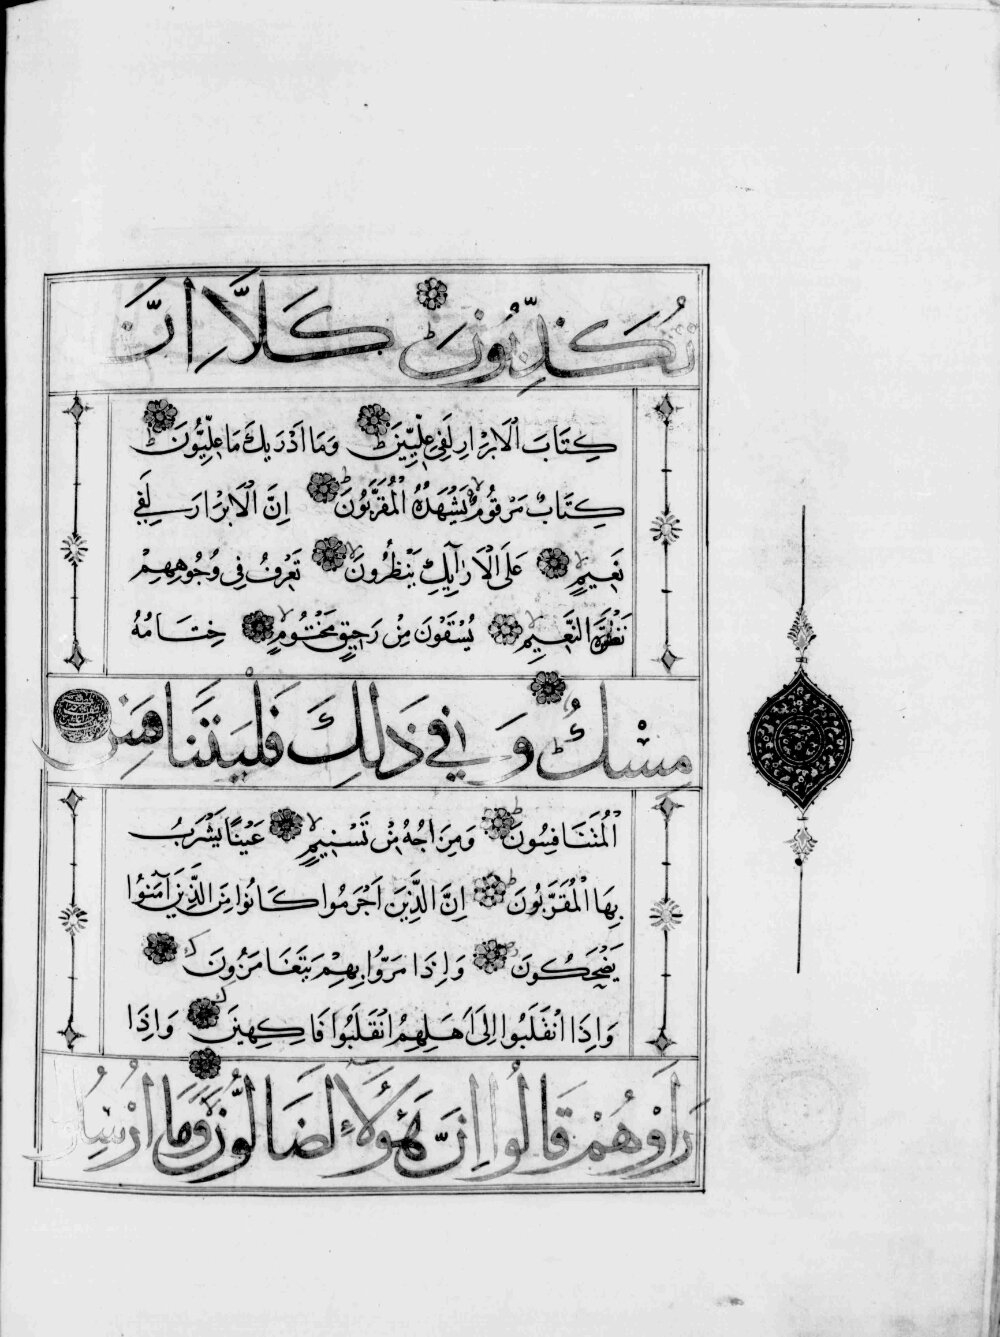 تُكَذِّبُونَ كَلَّا اِنَّ
كِتَابَ الْاَبْرَارِ لَفِي عِلِّيِّينَ وَمَا اَدْرٰيكَ مَا عِلِّيُّونَ
كِتَابٌ مَرْقُومٌ يَشْهَدُهُ الْمُقَرَّبُونَ اِنَّ الْاَبْرَارَ لَفِي
نَعِيمٍ عَلَى الْاَرَآئِكِ يَنْظُرُونَ تَعْرِفُ فِي وُجُوهِهِمْ
نَضْرَةَ النَّعِيمِ يُسْقَوْنَ مِنْ رَحِيقٍ مَخْتُومٍ خِتَامُهُ
مِسْكٌ وَفِي ذٰلِكَ فَلْيَتَنَافَسِ
الْمُتَنَافِسُونَ وَمِزَاجُهُ مِنْ تَسْنِيمٍ عَيْنًا يَشْرَبُ
بِهَا الْمُقَرَّبُونَ اِنَّ الَّذِينَ اَجْرَمُوا كَانُوا مِنَ الَّذِينَ آمَنُوا
يَضْحَكُونَ وَاِذَا مَرُّوا بِهِمْ يَتَغَامَزُونَ
وَاِذَا انْقَلَبُوا اِلَى اَهْلِهِمُ انْقَلَبُوا فَاكِهِينَ وَاِذَا
رَاَوْهُمْ قَالُوا اِنَّ هٰٓؤُلَاءِ لَضَالُّونَ وَمَا اُرْسِلُوا